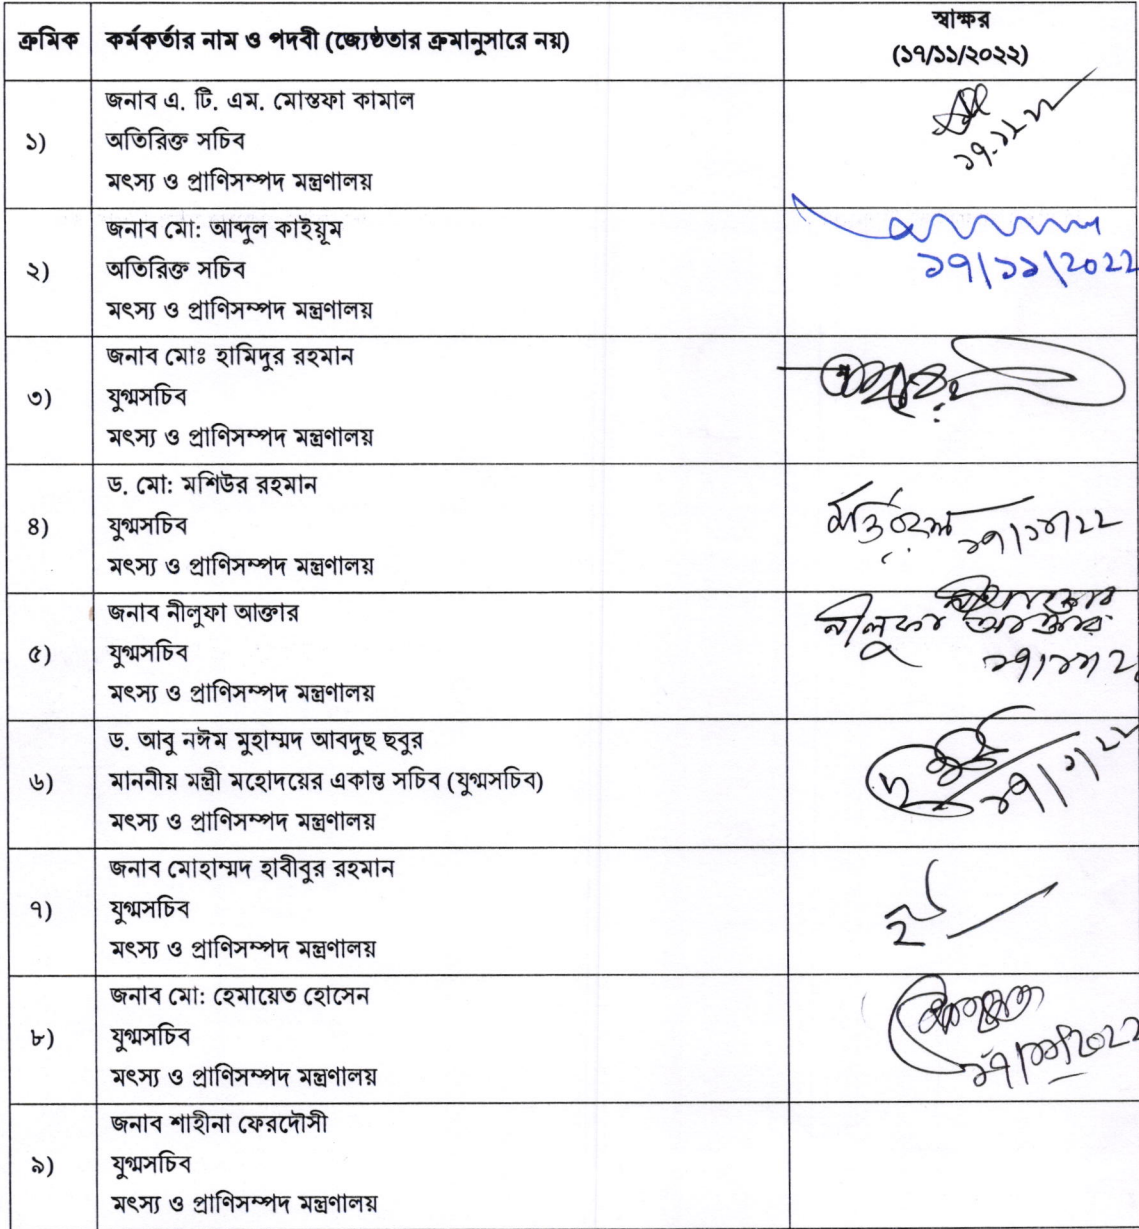 ক্রমিক কর্মকর্তার নাম ও পদবী (জ্যেষ্ঠতার ক্রমানুসারে নয়) স্বাক্ষর
(১৭/১১/২০২২)
১) জনাব এ. টি. এম. মোস্তফা কামাল
অতিরিক্ত সচিব
মৎস্য ও প্রাণিসম্পদ মন্ত্রণালয়
২) জনাব মো: আব্দুল কাইয়ূম
অতিরিক্ত সচিব
মৎস্য ও প্রাণিসম্পদ মন্ত্রণালয়
১৭/১১/2022
৩) জনাব মোঃ হামিদুর রহমান
যুগ্মসচিব
মৎস্য ও প্রাণিসম্পদ মন্ত্রণালয়
৪) ড. মো: মশিউর রহমান
যুগ্মসচিব
মৎস্য ও প্রাণিসম্পদ মন্ত্রণালয়
৫) জনাব নীলুফা আক্তার
যুগ্মসচিব
মৎস্য ও প্রাণিসম্পদ মন্ত্রণালয়
নীলুফা আক্তার
৬) ড. আবু নঈম মুহাম্মদ আবদুছ ছবুর
মাননীয় মন্ত্রী মহোদয়ের একান্ত সচিব (যুগ্মসচিব)
মৎস্য ও প্রাণিসম্পদ মন্ত্রণালয়
৭) জনাব মোহাম্মদ হাবীবুর রহমান
যুগ্মসচিব
মৎস্য ও প্রাণিসম্পদ মন্ত্রণালয়
৮) জনাব মো: হেমায়েত হোসেন
যুগ্মসচিব
মৎস্য ও প্রাণিসম্পদ মন্ত্রণালয়
৯) জনাব শাহীনা ফেরদৌসী
যুগ্মসচিব
মৎস্য ও প্রাণিসম্পদ মন্ত্রণালয়